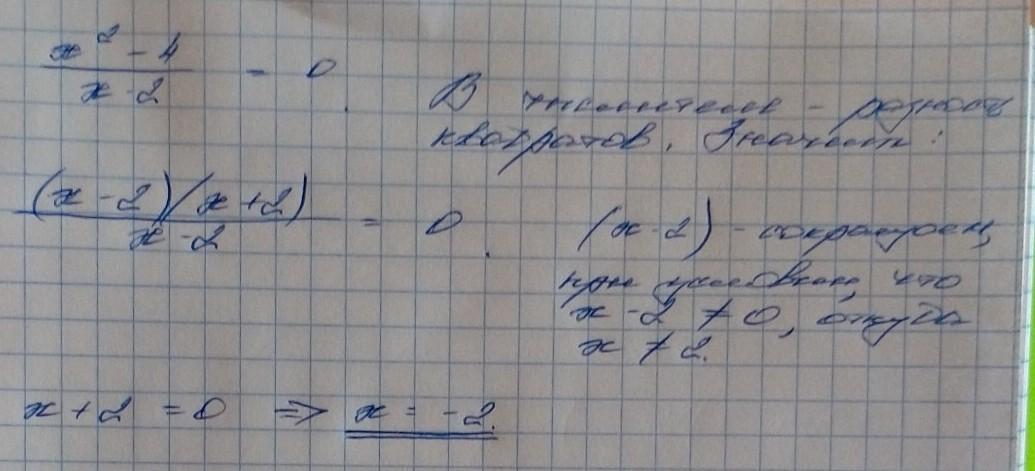 x² - 4
x - 2
= 0.
В числителе - разность
квадратов. Значит:
(x - 2)(x + 2)
x - 2
= 0.
(x - 2) - сокращаем,
при условии, что
x - 2 ≠ 0, откуда
x ≠ 2.
x + 2 = 0 ⇒ x = -2.